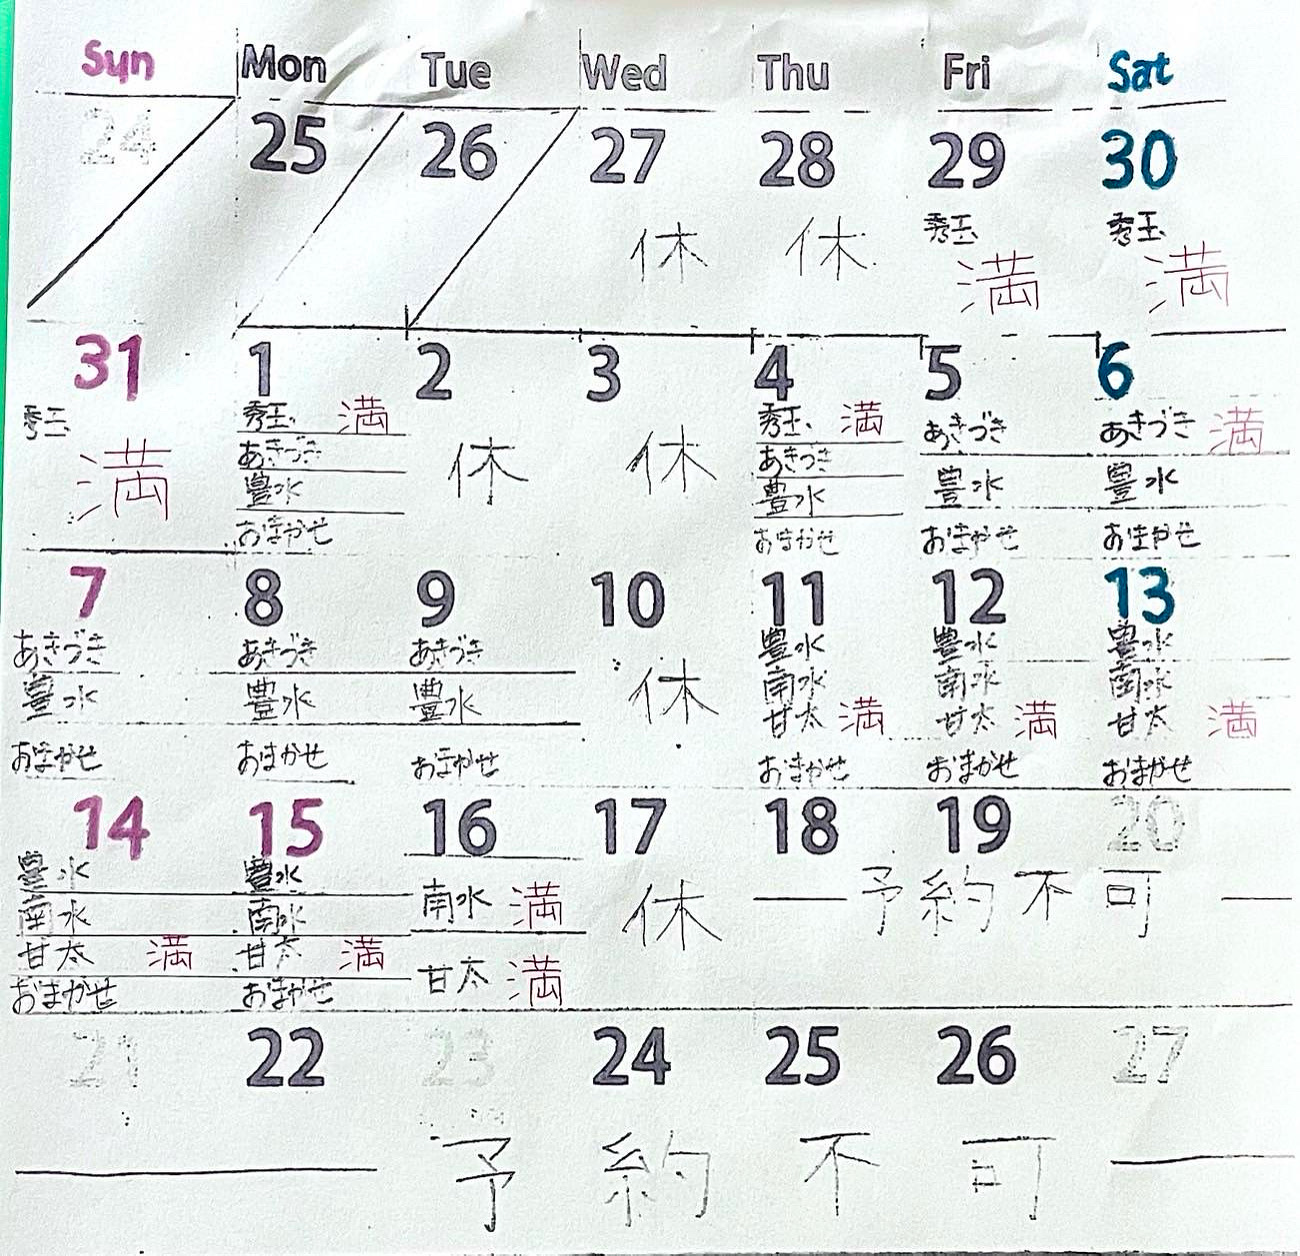 Sun Mon Tue Wed Thu Fri Sat
24 25 26 27 28 29 30
休 休 秀玉 満 秀玉 満
31 1 2 3 4 5 6
秀玉 満
秀玉 満
あきづき
豊水
おまかせ
休
休
秀玉 満
あきづき
豊水
おまかせ
あきづき
豊水
おまかせ
あきづき 満
豊水
おまかせ
7 8 9 10 11 12 13
あきづき
豊水
おまかせ
あきづき
豊水
おまかせ
あきづき
豊水
おまかせ
休
豊水
南水
甘太 満
おまかせ
豊水
南水
甘太 満
おまかせ
豊水
南水
甘太 満
おまかせ
14 15 16 17 18 19 20
豊水
南水
甘太 満
おまかせ
豊水
南水
甘太 満
おまかせ
南水 満
甘太 満
休
予約不可
21 22 23 24 25 26 27
予約不可